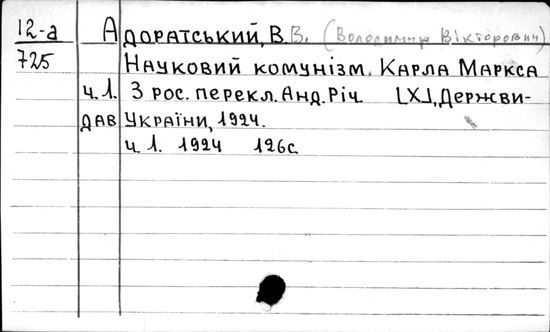 12-а Адоратський, В.В. (Володимир Вікторович)
725 Науковий комунізм Карла Маркса
ч.1. З рос. перекл. Анд. Річ. [Х.], Держви-
дав України, 1924.
ч. 1. 1924 126с.